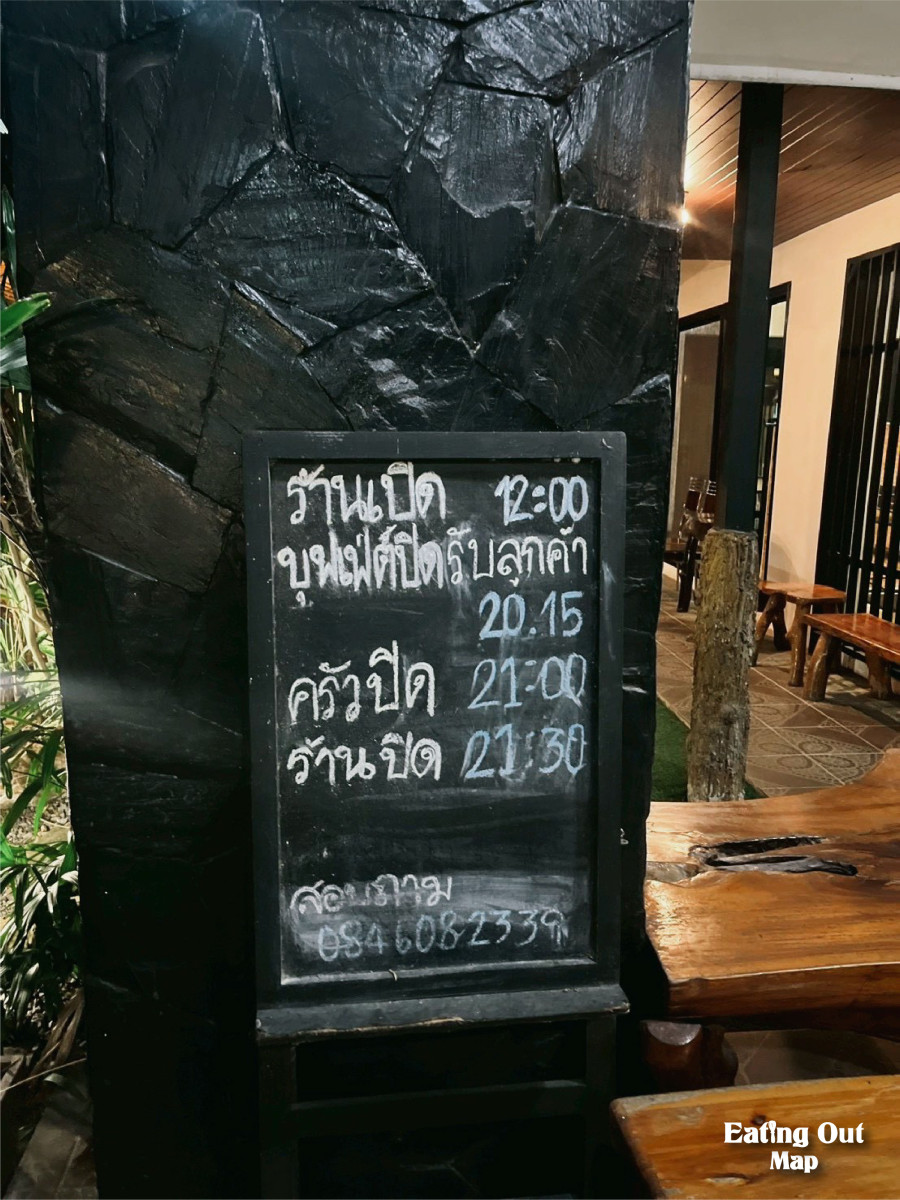 ร้านเปิด 12:00
บุฟเฟ่ต์ปิดรับลูกค้า
20.15
ครัวปิด 21:00
ร้านปิด 21:30
สอบถาม
0846082339
Eating Out
Map